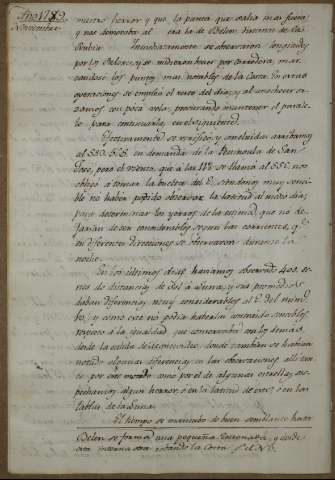 Año 1789
Noviembre
menos horror y que la punta que salia mas fuera,
y nos demoraba al era la de Belen distante de la
Rubia. Inmediatamente se observaron longitudes
por los Relojes, y se midieron bases por corredera, mar
candose los puntos mas notables de la Costa. En estas
operaciones se empleó el resto del dia, y al anochecer cru
zamos con poca vela, procurando mantener el parale
lo para continuarlas en el siguiente.
Efectivamente se verificó, y concluidas arribamos
al S.E. en demanda de la Peninsula de San
José, pero el viento, que á las se llamó al SSE, nos
obligó a tomar la buelta del E. siendonos muy sensi
ble no haber podido observar la latitud al medio dia,
para determinar los yerros de la estima, que no de
jarian de ser considerables segun las corrientes, q.
en diferentes direcciones se observaron durante la
noche.
En los ultimos dias haviamos observado 400 se
ries de distancias de Sol á Luna, y sus promedios
daban diferencias muy considerables al E. del
y como este no podia haberlas contraido sensibles,
respecto á la igualdad que conservaba con los demas,
desde la salida de Montevideo, donde tambien se habian
notado algunas diferencias en las observaciones
por este metodo como por el de algunas estrellas, sos
pechamos algun horror, ó en la latitud de ó en las
tablas de la Luna.
El tiempo se mantubo de buen semblante hasta
Belen se forma una pequeña Ensenada, y desde
esta misma sera robando la Costa al N.O.